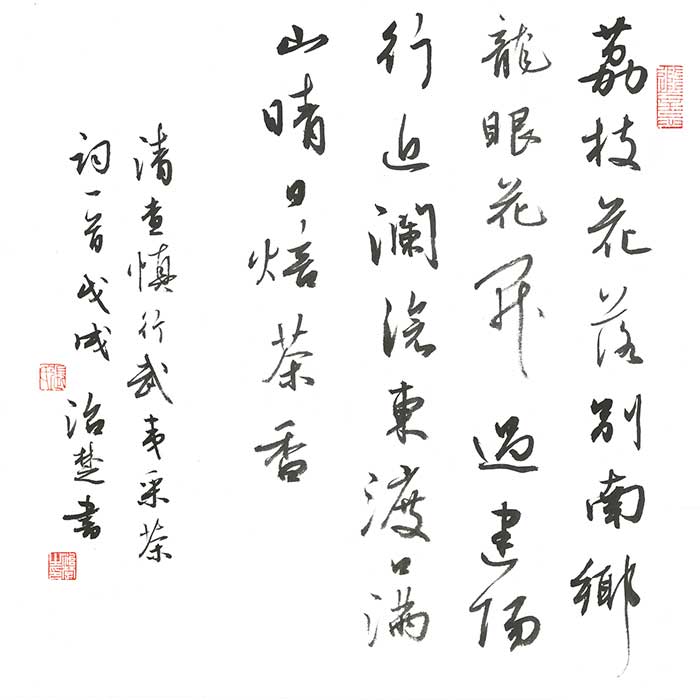 荔枝花落別南鄉
龍眼花開過建陽
行近瀾滄東渡口滿
山晴日焙茶香
清查慎行武夷采茶
詞一首戊戌 治楚書